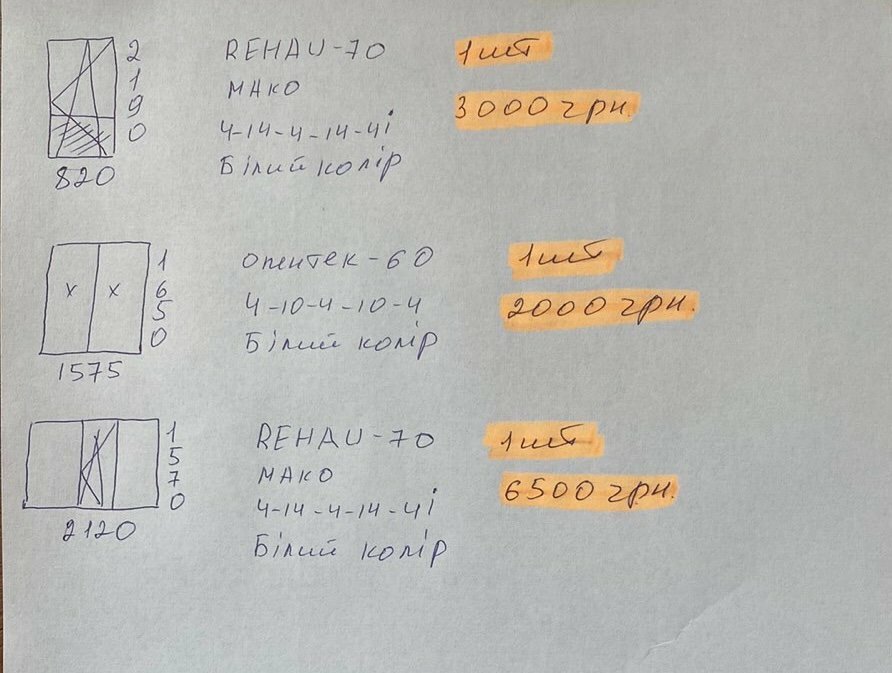 2190
820
REHAU-70
МАКО
4-14-4-14-4і
Білий колір
1 шт
3000 грн.
1650
1575
опентек-60
4-10-4-10-4
Білий колір
1 шт
2000 грн.
1570
2120
REHAU-70
МАКО
4-14-4-14-4і
Білий колір
1 шт
6500 грн.